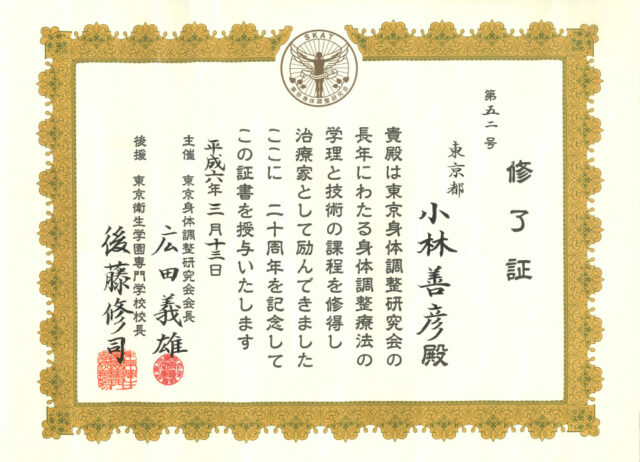 SKAT
東京身体調整研究会
第五二号
修了証
東京都
小林善彦殿
貴殿は東京身体調整研究会の
長年にわたる身体調整療法の
学理と技術の課程を修得し
治療家として励んできました
ここに 二十周年を記念して
この証書を授与いたします
平成六年三月十三日
主催 東京身体調整研究会会長
広田義雄
後援 東京衛生学園専門学校校長
後藤修司